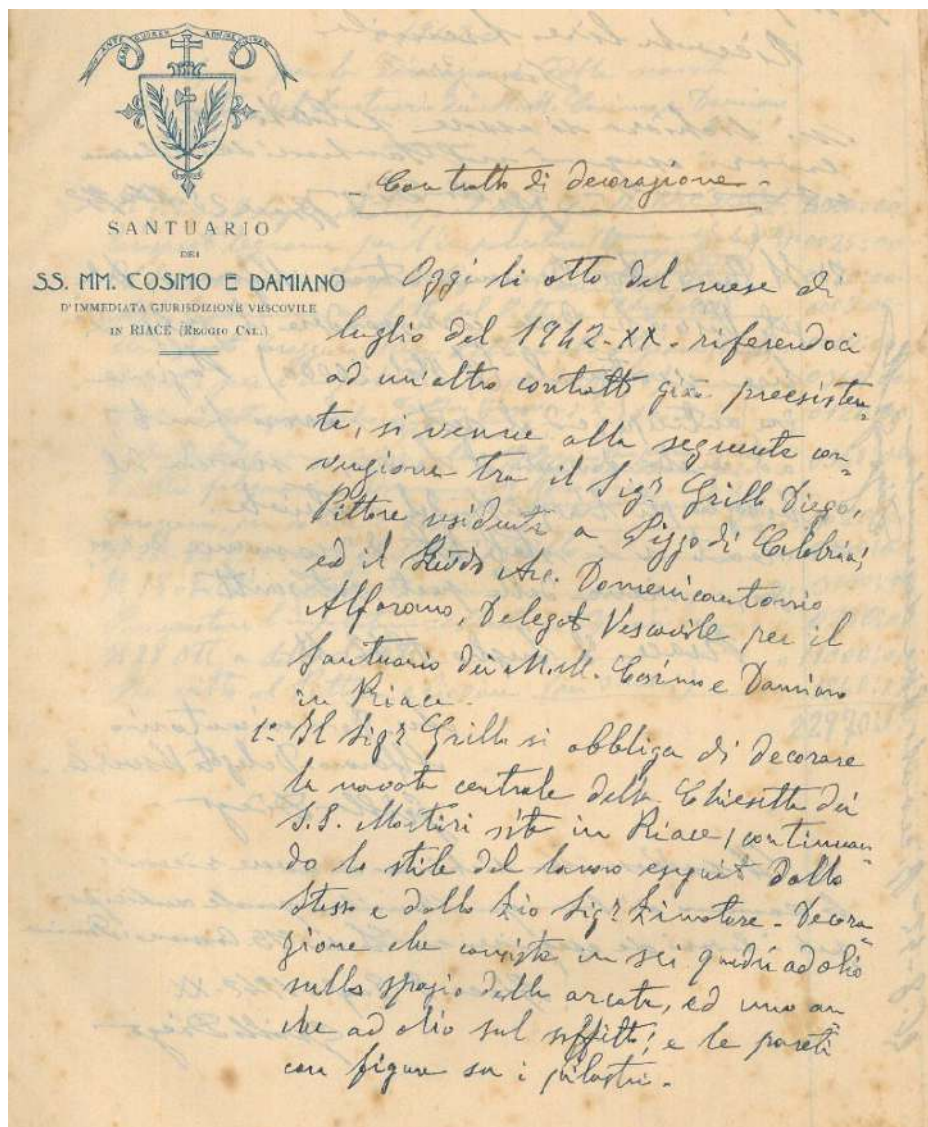 SANTUARIO
DEI
SS. MM. COSIMO E DAMIANO
D'IMMEDIATA GIURISDIZIONE VESCOVILE
IN RIACE (REGGIO CAL.)
- Contratto di decorazione -
Oggi li otto del mese di
luglio del 1942-XX- riferendoci
ad un'altro contratto già preesisten=
te, si venne alla seguente con=
venzione tra il Sigr Grillo Diego,
Pittore residente a Pizzo di Calabria;
ed il Arc. Domenicantonio
Alfarano, Delegato Vescovile per il
Santuario dei M.M. Cosimo e Damiano
in Riace.
1º Il Sigr Grillo si obbliga di decorare
la navata centrale della Chiesetta dei
S.S. Martiri sita in Riace, continuan=
do lo stile del lavoro eseguito dallo
stesso e dallo zio Sigr Zimatore - Decora=
zione che consiste in sei quadri ad olio
sullo spazio delle arcate, ed uno an=
che ad olio sul soffitto; e le pareti
con figure su i pilastri.